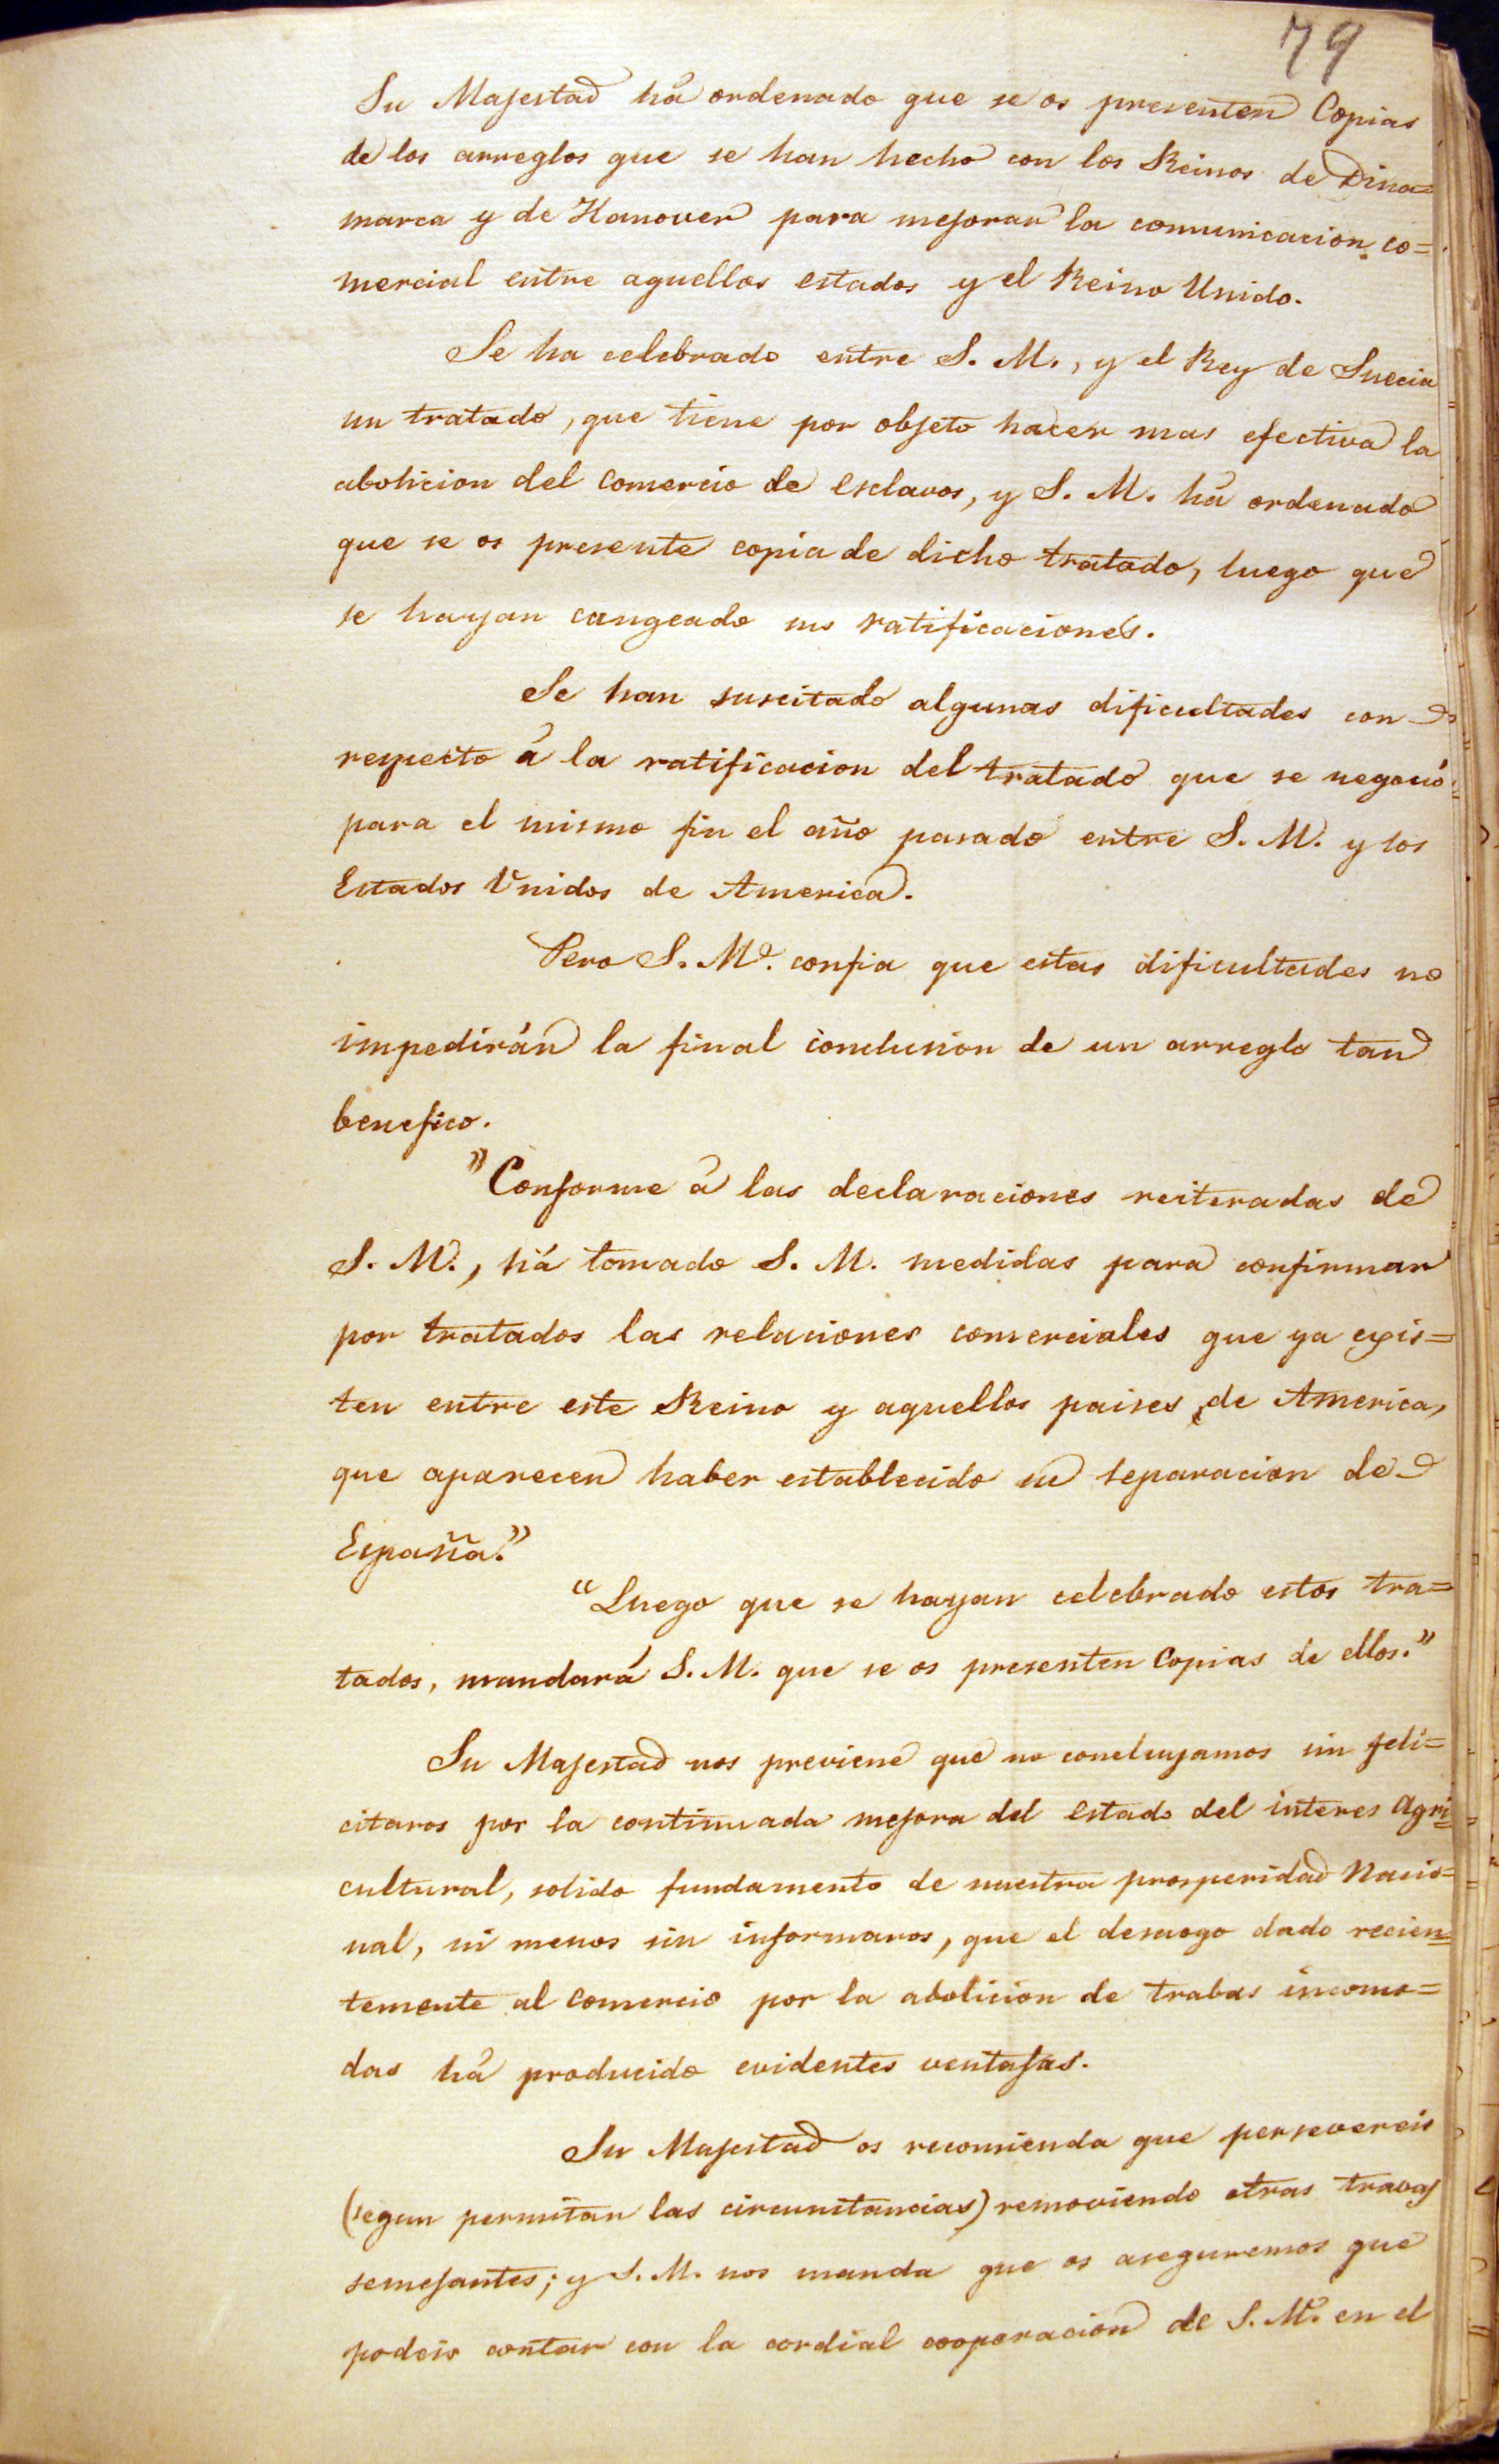 79
Su Majestad há ordenado que se os presenten Copias
de los arreglos que se han hecho con los Reinos de Dina=
marca y de Hanover para mejorar la comunicacion co=
mercial entre aquellos estados y el Reino Unido.
Se ha celebrado entre S. M., y el Rey de Suecia
un tratado, que tiene por objeto hacer mas efectiva la
abolicion del comercio de esclavos, y S. M. há ordenado
que se os presente copia de dicho tratado, luego que
se hayan cangeado sus ratificaciones.
Se han suscitado algunas dificultades con
respecto á la ratificacion del tratado que se negoció
para el mismo fin el año pasado entre S. M. y los
Estados Unidos de America.
Pero S. M. confia que estas dificultades no
impedirán la final conclusion de un arreglo tan
benefico.
"Conforme á las declaraciones reiteradas de
S. M., há tomado S. M. medidas para confirmar
por tratados las relaciones comerciales que ya exis=
ten entre este Reino y aquellos paises de America,
que aparecen haber establecido su separacion de
España."
"Luego que se hayan celebrado estos tra=
tados, mandará S. M. que se os presenten Copias de ellos."
Su Majestad nos previene que no concluyamos sin feli=
citaros por la continuada mejora del estado del interes Agri=
cultural, solido fundamento de nuestra prosperidad Nacio=
nal, ni menos sin informaros, que el desaogo dado recien=
temente al comercio por la abolicion de trabas incomo=
das há producido evidentes ventajas.
Su Majestad os recomienda que persevereis
(segun permitan las circunstancias) removiendo otras travas
semejantes; y S. M. nos manda que os aseguremos que
podeis contar con la cordial cooporacion de S. M. en el